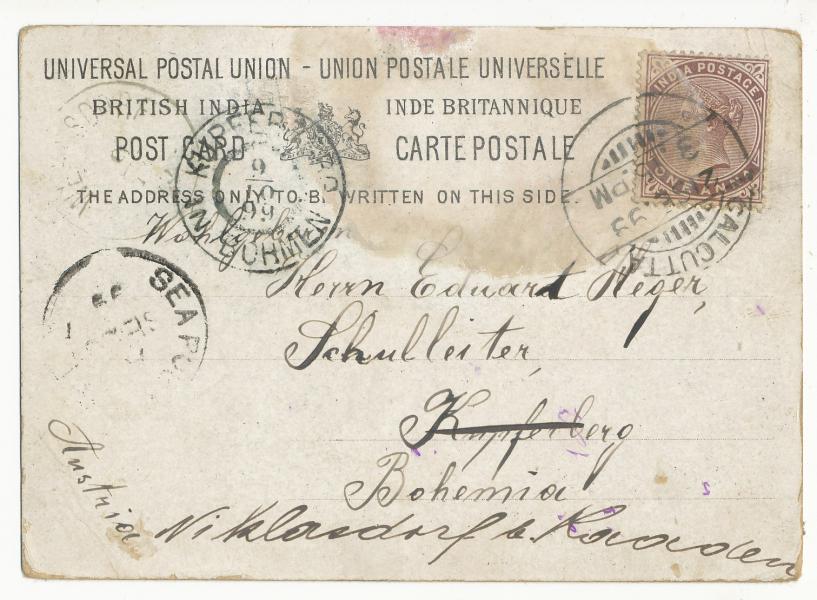 UNIVERSAL POSTAL UNION - UNION POSTALE UNIVERSELLE
BRITISH INDIA INDE BRITANNIQUE
POST CARD CARTE POSTALE
THE ADDRESS ONLY TO B. WRITTEN ON THIS SIDE.
INDIA POSTAGE
ONE ANNA
CALCUTTA
PM
KUPFERBERG
IN BÖHMEN
9
99
SEA P
Herrn Eduart Heger,
Schulleiter,
Kupferberg
Bohemia
Austria
Niklasdorf b. Kaaden